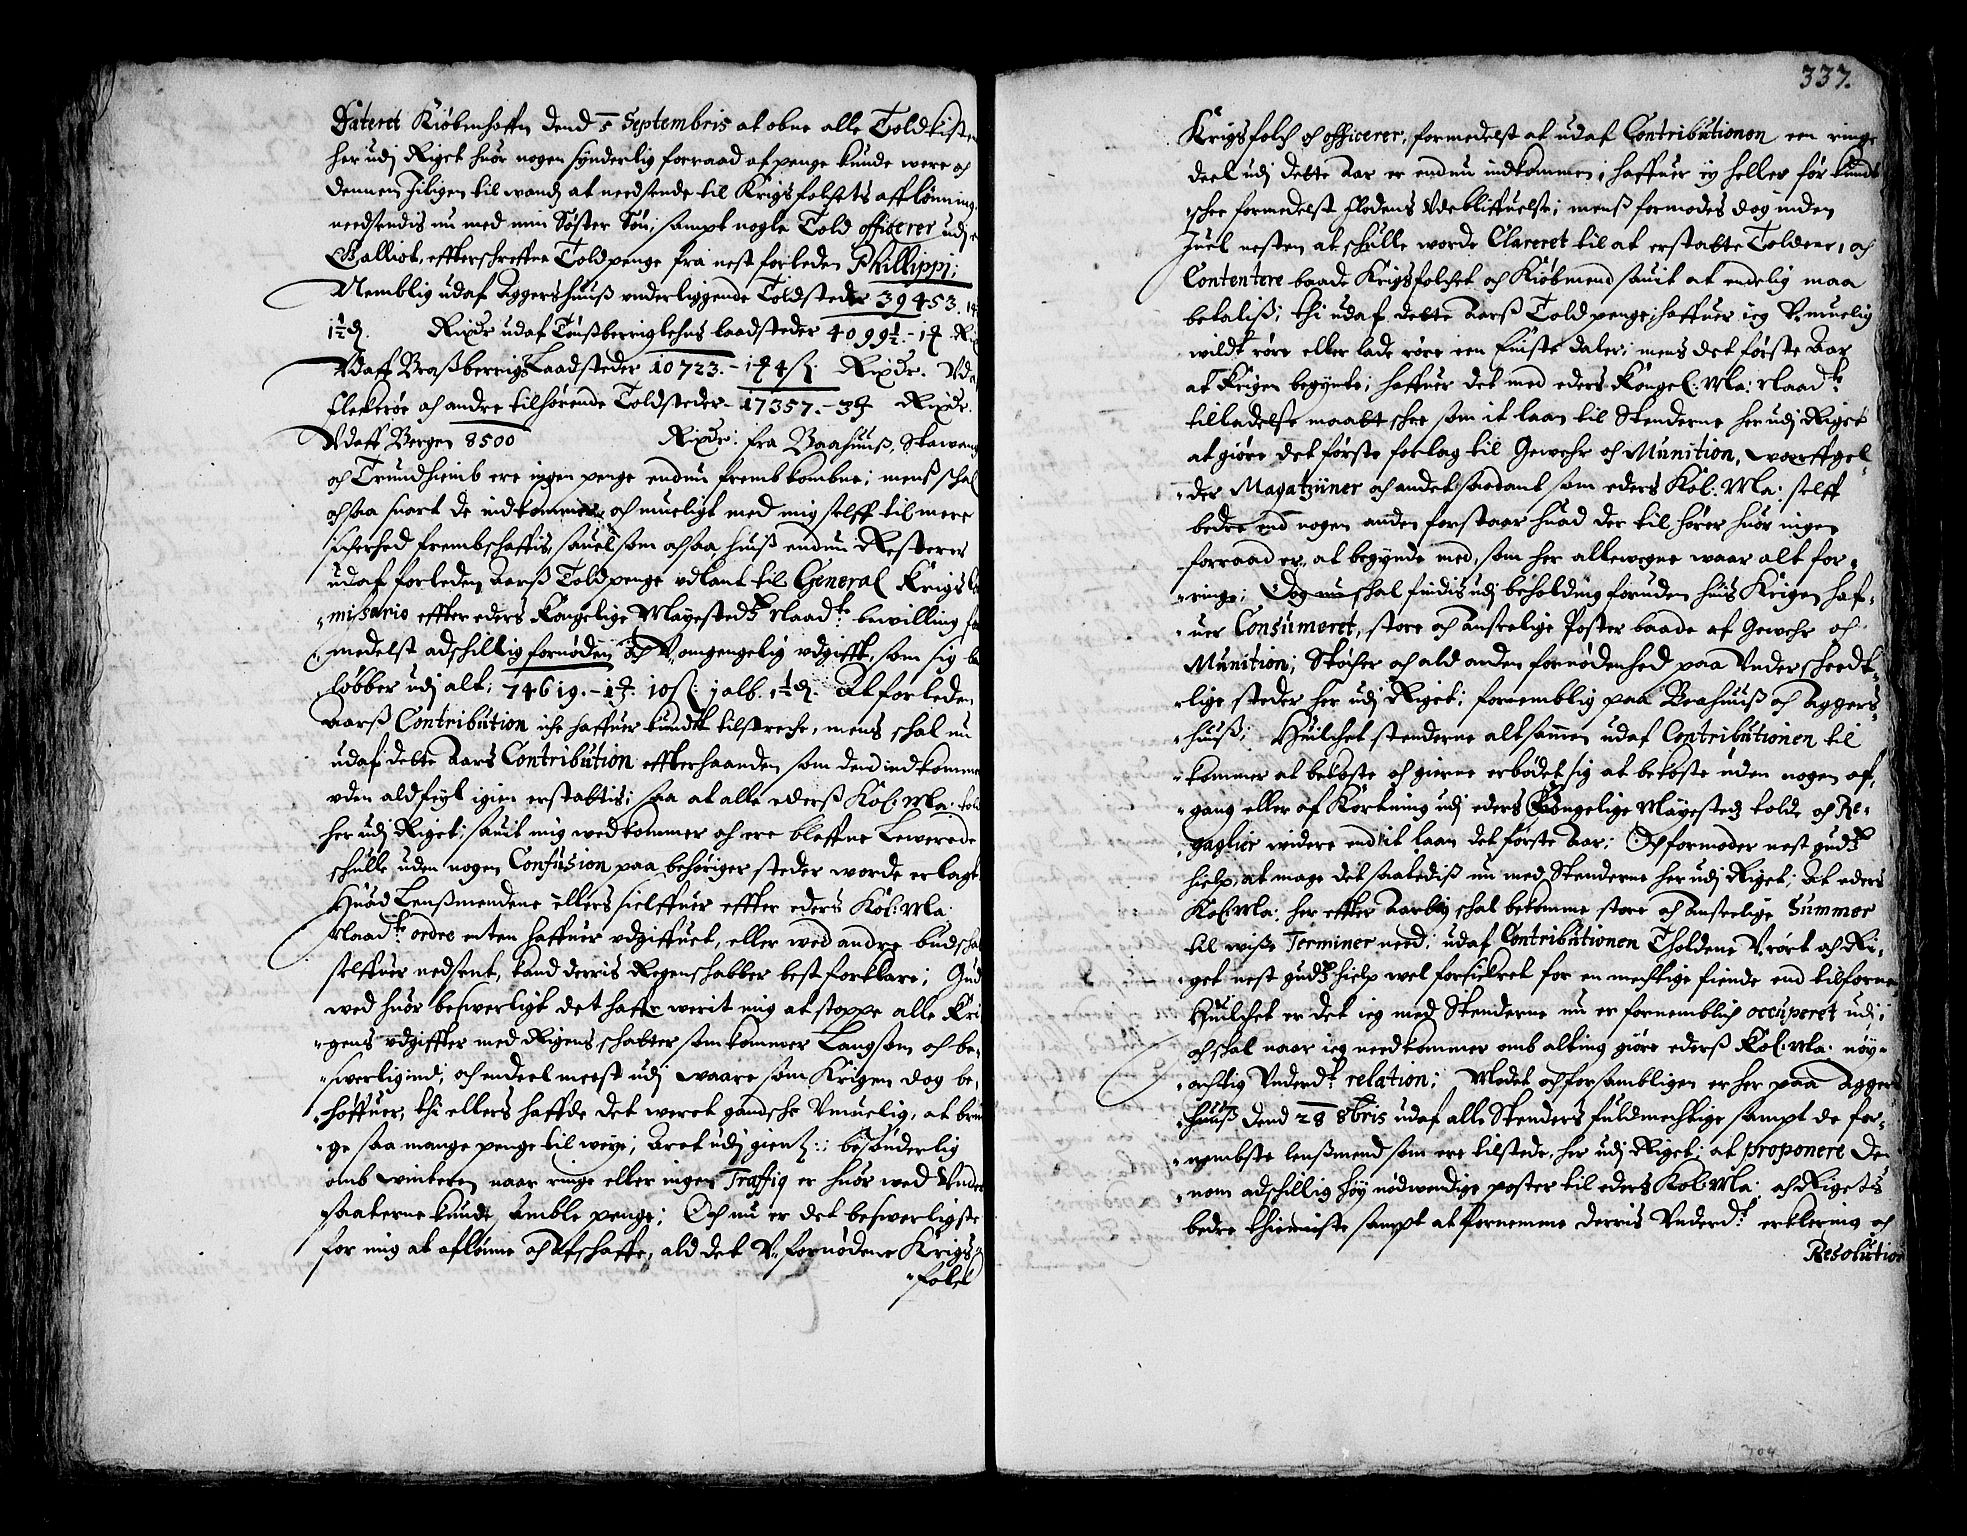 Dateret Kiöbenhaffn dend 5 Septembris at obne alle Toldkister
her udj Riget huor nogen synderlig forraad af penge kunde were och
dennem Jiligen til wands at needsende til Krigsfolchets afflönning,
needsendis nu med min Söster Sön, sampt nogle Told officerer udj
Galliot, effterschreffne Toldpenge fra nest forleden Phillippi;
Nemblig udaf Aggershuuß underliggende Toldsteder 39453. 1
1½ ẟ. Rixdr udaf Tönßberriglehns laadsteder 4099½.- 1 Rix
Vdaff Braßberrigs Laadsteder 10723.- 1 4 ß. Rixdr. Vda
fleckeröe och andre tilhörende Toldsteder- 17357.- 3 Rixdr.
Vdaff Bergen 8500 Rixdr: fra Baahuuß, Stawang
och Trundhiemb ere ingen penge endnu frembkombne; mens schal
ochsaa snart de indkommer och mueligt med mig selff til mere
sicherhed frembschaffis, sauelsom ochsaa, huiß endnu Resterer
udaf forleden Aarß Toldpenge udlant til General Krigs Co
misario effter eders Kongelige Mayestedtz Naadste bewilling for
medelst adschillig fornöden och Vomgengelig udgifft, som sig be
löbber udj alt; 74619.- 1 10 ß 1 alb. 1½ ẟ. At forleden
Aarß Contribution iche haffuer kundt tilstreche, mens schal nu
udaf dette Aars Contribution effterhaanden som dend indkommer
uden ald feyl igien erstattis; saa at alle ederß Kol: Ma: told
her udj Riget; sauit mig wedkommer och ere bleffne Lewerede
schulle uden nogen Confusion paa behöriger steder worde erlagt
Huad Lenßmendene ellers sielffuer effter eders Kol: Ma:
Naadste ordre enten haffuer udgiffuet, eller wed andre budschab
selffuer nedsent, kand derris Regenschabber best forklare; Gud
wed huor beswerligt det haffr werit mig at stoppe alle Kri
gens udgiffter med Rigens schatter som kommer Langsom och be-
swerlig ind; och endeel meest udj waare som Krigen dog be-
höffuer; thi ellers haffde det weret gandsche Vmuelig, at brin
ge saa mange penge til weye; Aret udj gientz: besönderlig
omb winteren naar ringe eller ingen Traffig er huor wed Under
saatterne kunde samble penge; Och nu er det beswerligste
for mig at aflönne och Afschaffe, ald det V-fornödene Krigs
folck
337.
Krigsfolch och officerer, formedelst at udaf Contributionen een ringe
deel udj dette Aar er endnu indkommen; haffuer ey heller för kundt
schee formedelst flodens Vdebliffuelse; menß formodes dog inden
Juel nesten at schulle worde Clareret til at erstatte Tolden, och
Contentere baade Krigsfolchet och Kiöbmend sauit at endelig maa
betaliß; thi udaf dette Aarß Toldpenge, haffuer ieg V-muelig
wildt röre eller lade röre een eniste daler; mens det förste Aar
at Krigen begynte; haffuer det med eders Kongel: Ma: Naadste
tilladelse maatt schee som it laan til Stenderne her udj Riget
at giöre det förste forlag til Gewehr och Munition, werffgel-
der Magatziiner och andet saadant som eders Kol: Ma: selff
bedre end nogen anden forstaar huad der til hörer huor ingen
forraad er, at begynde med, som her allewegne waar alt for-
ringe; Dog schal findis udj beholding foruden huis Krigen haf-
uer Consumeret, store och Anseelige Poster baade af Gewehr och
Munition; Stöcher och ald anden fornödenhed paa Underscheedt-
lige steder her udj Riget; fornemblig paa Baahuuß och Aggers-
huuß; Huilchet stenderne altsammen udaf Contributionen til
kommer at bekoste och gierne erbödet sig at bekoste uden nogen af-
gang eller af Kortning udj eders Kongelige Mayestedz tolde och Re-
gaglier widere end it laan det förste Aar; Och formoder nest gudtz
hielp, at mage det saalediß nu med Stenderne her udj Riget; At eders
Kol: Ma: her effter Aarlig schal bekomme store och Anseelige Summer
til wiße Terminer need; udaf Contributionen Tholdene V-rört och Ri-
get nest gudtz hielp wel forsickret for en mechtige fiende end tilforne
Huilchet er det ieg med Stenderne nu er fornemblich occuperet udj;
och schal naar ieg needkommer omb alting giöre ederß Kol: Ma: nöy-
achtig Underdst relation; Mödet och forsamblingen er her paa Aggers
huuß dend 28 8bris udaf alle Stenders fuldmechtige sampt de for-
nembste lenßmend som ere tilstede, her udj Riget; at proponere den-
nom adschillig höy nödwendige poster til eders Kol: Ma: och Rigets
bedre thienniste sampt at fornemme derris Underdst erklering och
Resolution
304